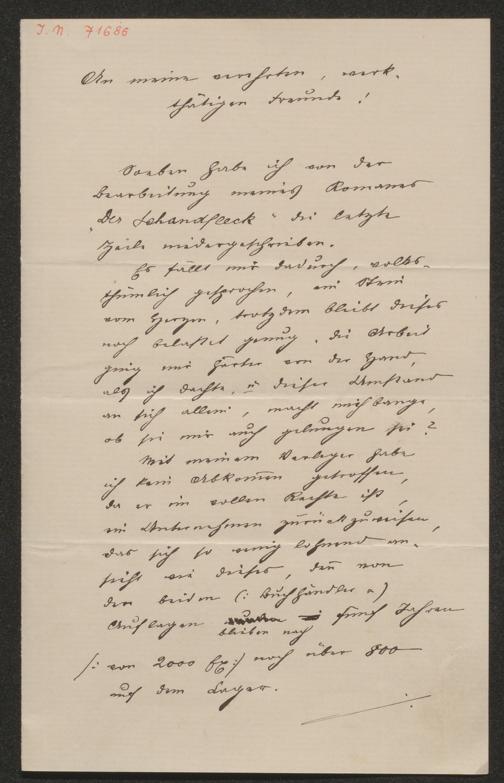 J. N. 71686
An meine verehrten, werk-
thätigen Freunde!
Soeben habe ich von der
Bearbeitung meines Romanes
„Der Schandfleck“ die letzte
Zeile niedergeschrieben.
Es fällt mir dadurch, volks-
thümlich gesprochen, ein Stein
vom Herzen, trotzdem bleibt dieses
noch belastet genug, die Arbeit
ging mir härter von der Hand,
als ich dachte, u dieser Umstand
an sich allein, macht mich bange,
ob sie mir auch gelungen sei?
Mit meinem Verleger habe
ich kein Abkom̄en getroffen,
da er im vollen Rechte ist,
ein Unternehmen zurückzuweisen,
das sich so wenig lohnend an-
sieht wie dieses, den̄ von
den beiden (: Buchhändler :)
Auflagen fünf Jahren
bleiben nach
/: von 2000 Ex :/ noch über 800
auf dem Lager.